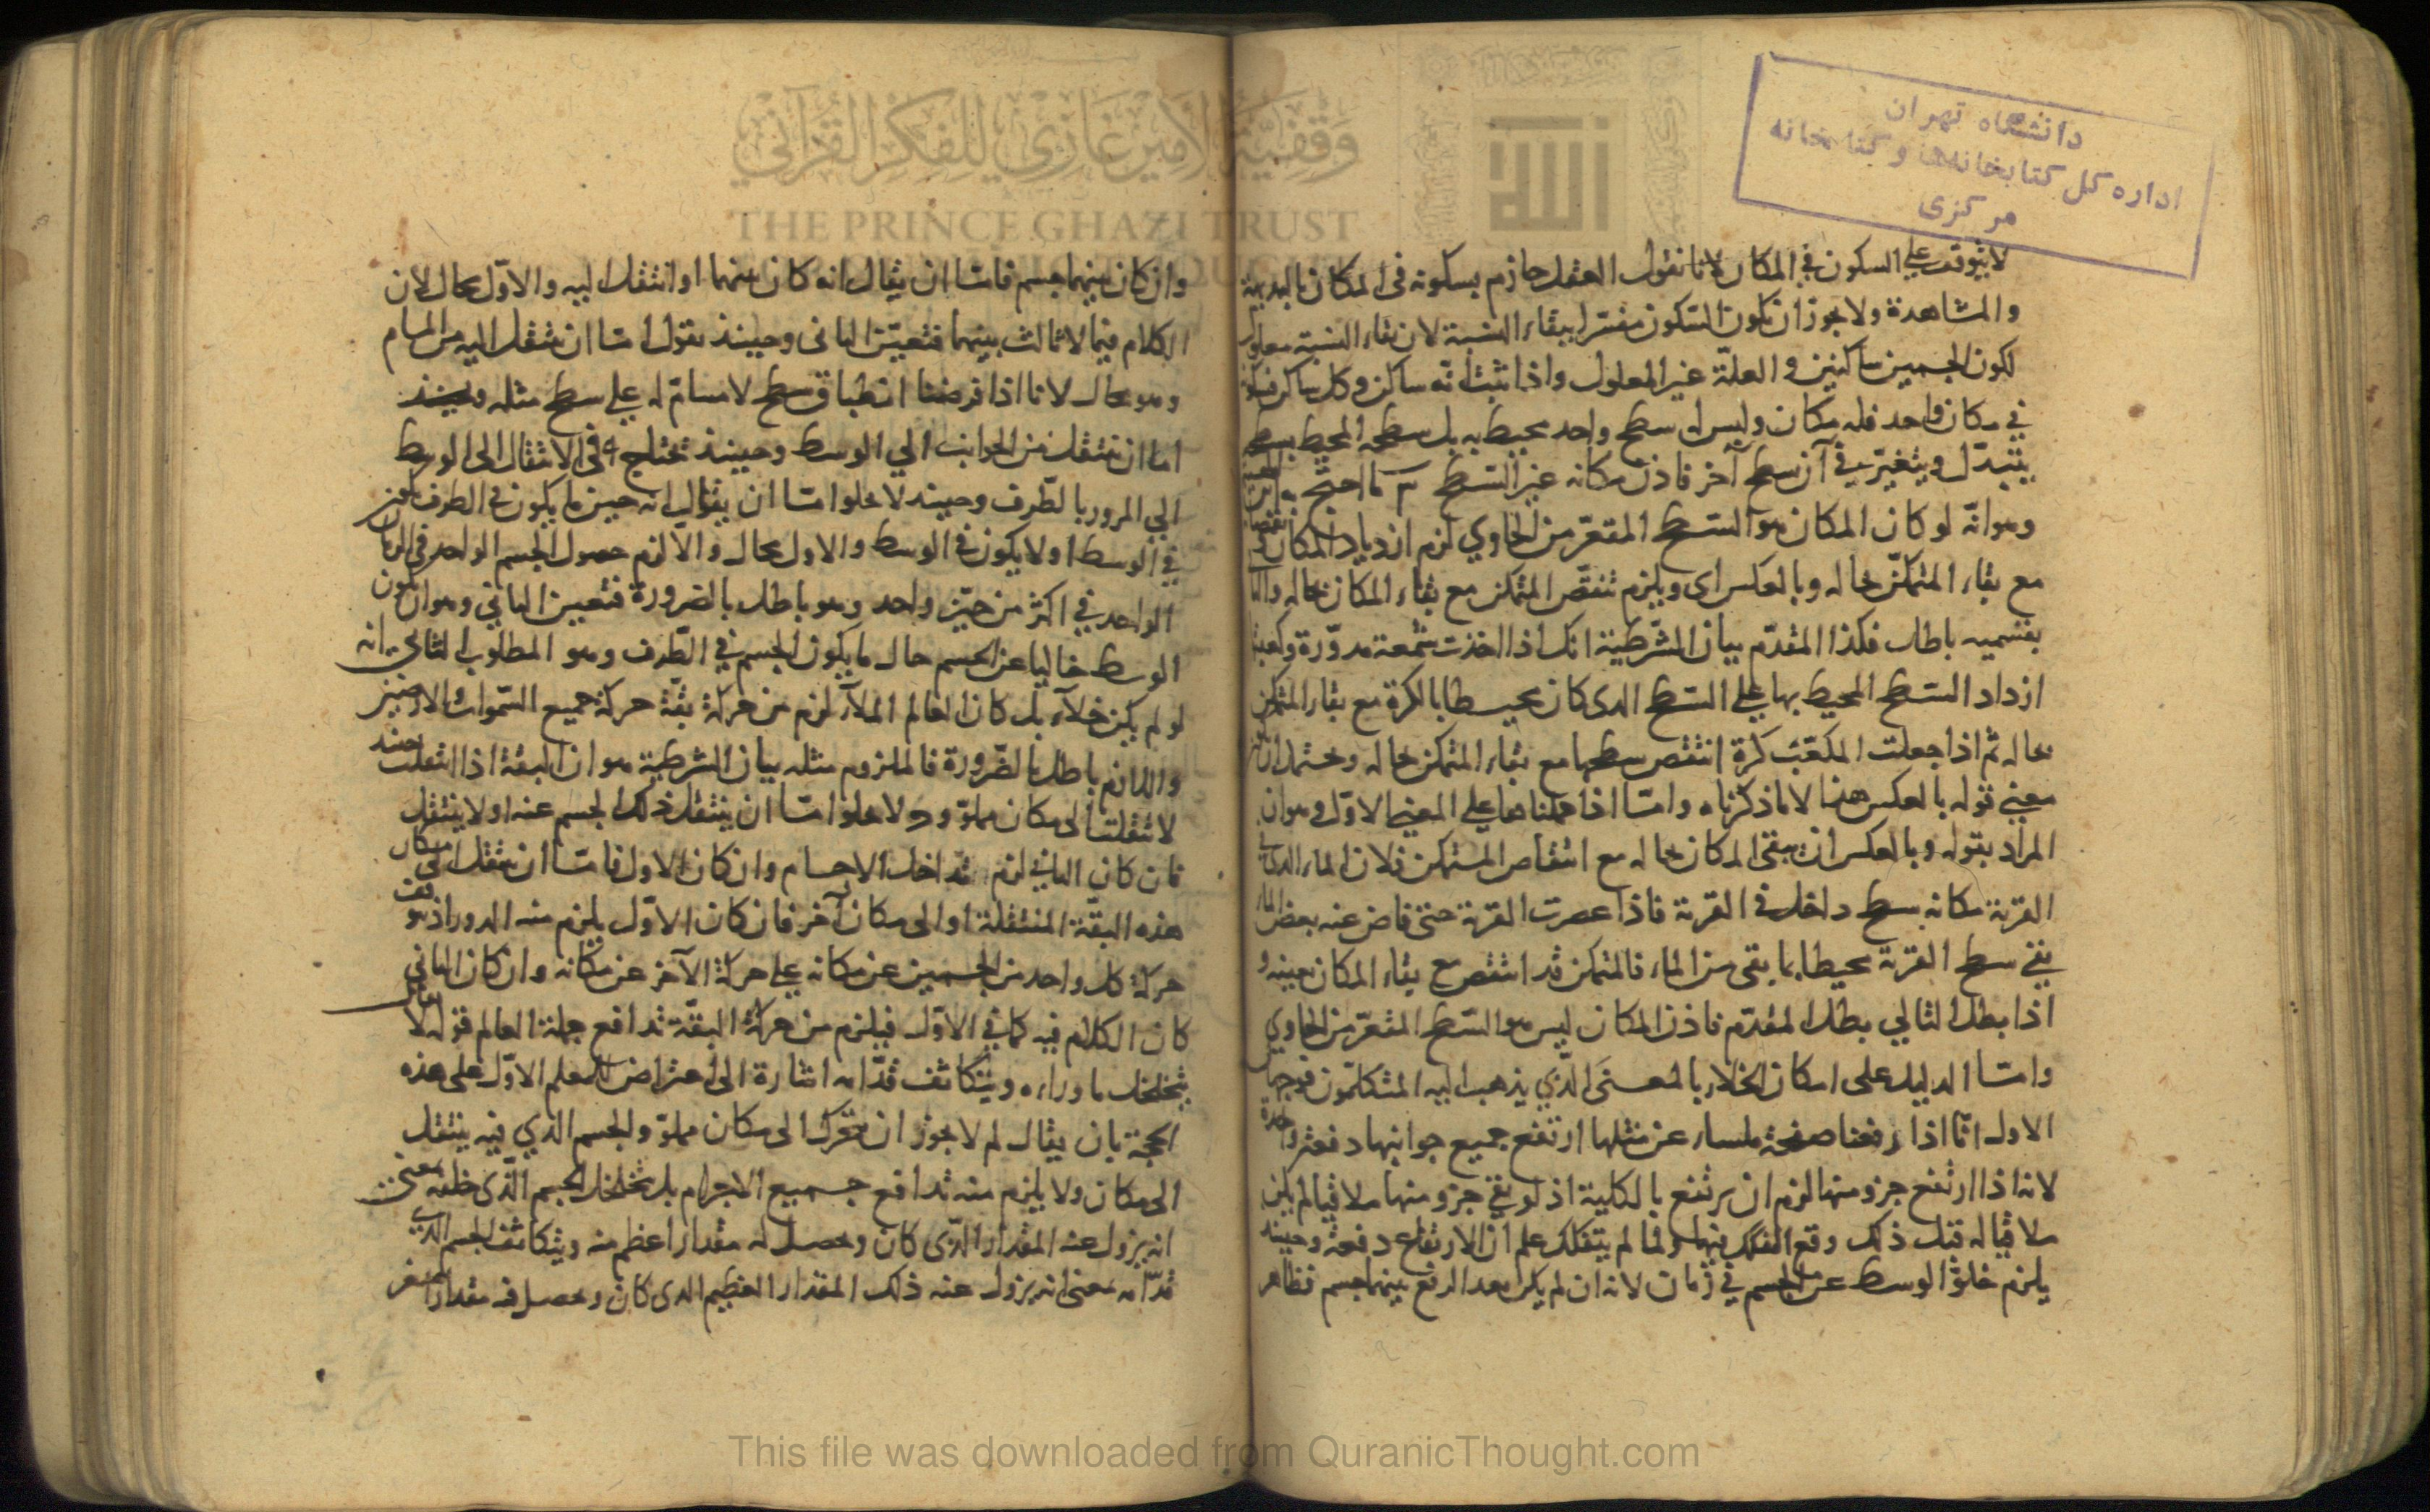 دانشگاه تهران
اداره کل کتابخانه‌ها و کتابخانه
مرکزی
لا يتوقف علي السكون في المكان لانا نقول العقل جازم بسكونه في المكان بالبديهة
والمشاهدة ولا يجوز ان يكون السكون مفسرا ببقاء النسبة لان بقاء النسبة معلول
لكون الجسمين ساكنين والعلة غير المعلول واذا ثبت انه ساكن وكل ساكن
في مكان واحد فله مكان وليس له سطح واحد محيط به بل سطحه المحيط به
يتبدل ويتغير في آن سطح آخر فاذن مكانه غير السطح
وهو انه لو كان المكان هو السطح المقعر من الحاوي لزم ازدياد المكان
مع بقاء المتمكن بحاله وبالعكس اى ويلزم تنقص المتمكن مع بقاء المكان بحاله
بقسميه باطل فكذا المقدم بيان الشرطية انك اذا اخذت شمعة مدورة
ازداد السطح المحيط بها علي السطح الذى كان محيطا بالكرة مع بقاء المتمكن
بحاله ثم اذا جعلت المكعب كرة انتقص سطحها مع بقاء المتمكن بحاله ويحتمل ان
معني قوله بالعكس هذا لا ما ذكرناه واما اذا حملناها علي المعني الاول وهو ان
المراد بقوله وبالعكس ان يبقى المكان بحاله مع انتقاص المتمكن فلان الماء الذي
القربة مكانه سطح داخل في القربة فاذا عصرت القربة حتى فاض عنه بعض الماء
بقي سطح القربة محيطا بما بقى من الماء فالمتمكن قد انتقص مع بقاء المكان بعينه و
اذا بطل التالي بطل المقدم فاذن المكان ليس هو السطح المقعر من الحاوي
واما الدليل على امكان الخلاء بالمعنى الذي يذهب اليه المتكلمون فوجهان
الاول انا اذا رفعنا صفحة ملساء عن مثلها ارتفع جميع جوانبها دفعة واحدة
لانه اذا ارتفع جزو منها لزم ان يرتفع بالكلية اذ لو بقي جزو منها ملاقيا لما يكن
ملاقيا له قبل ذلك وقع التفكك فيها ولما لم يتفكك علم ان الارتفاع دفعة وحينئذ
يلزم خلو الوسط عن الجسم في زمان لانه ان لم يكن بعد الرفع بينهما جسم فظاهر
وان كان بينهما جسم فاما ان يقال انه كان بينهما او انتقل اليه والاول محال لان
الكلام فيما لا ثالث بينهما فتعين الثاني وحينئذ نقول اما ان ينتقل اليه من المسام
وهو محال لانا اذا فرضنا انطباق سطح لا مسام له علي سطح مثله وحينئذ
اما ان ينتقل من الجوانب الي الوسط وحينئذ يحتاج في الانتقال الى الوسط
الي المرور بالطرف وحينئذ لا يخلوا اما ان يقال انه حين ما يكون في الطرف يكون
في الوسط او لا يكون في الوسط والاول محال والا لزم حصول الجسم الواحد في الزمان
الواحد في اكثر من حيز واحد وهو باطل بالضرورة فتعين الثاني وهو ان يكون
الوسط خاليا عن الجسم حال ما يكون الجسم في الطرف وهو المطلوب الثاني انه
لو لم يكن خلاء بل كان العالم الملآء لزم من حركة بقة حركة جميع السموات والارضين
واللازم باطل بالضرورة فالملزوم مثله بيان الشرطية هو ان البقة اذا انتقلت حينئذ
لانتقلت الى مكان مملو ولا يخلوا اما ان ينتقل ذلك الجسم عنه او لا ينتقل
فان كان الثاني لزم تداخل الاجسام وان كان الاول فاما ان ينتقل الي مكان
هذه البقة المنتقلة او الى مكان آخر فان كان الاول يلزم منه الدور اذ
حركة كل واحد من الجسمين عن مكانه علي حركة الآخر عن مكانه وان كان الثاني
كان الكلام فيه كما في الاول فيلزم من حركة البقة تدافع جملة العالم قوله لا
يتخلخل ما وراءه ويتكاثف قدامه اشارة الى اعتراض المعلم الاول على هذه
الحجة بان يقال لم لا يجوز ان يتحرك الى مكان مملو والجسم الذي فيه ينتقل
الى مكان ولا يلزم منه تدافع جميع الاجرام بل يتخلخل الجسم الذى خلفه بمعنى
انه يزول عنه المقدار الذى كان ويحصل له مقدار اعظم منه ويتكاثف الجسم الذي
قدامه بمعنى انه يزول عنه ذلك المقدار العظيم الذى كان ويحصل فيه مقدار اصغر
وقفية الأمير غازي للفكر القرآني
THE PRINCE GHAZI TRUST
This file was downloaded from QuranicThought.com